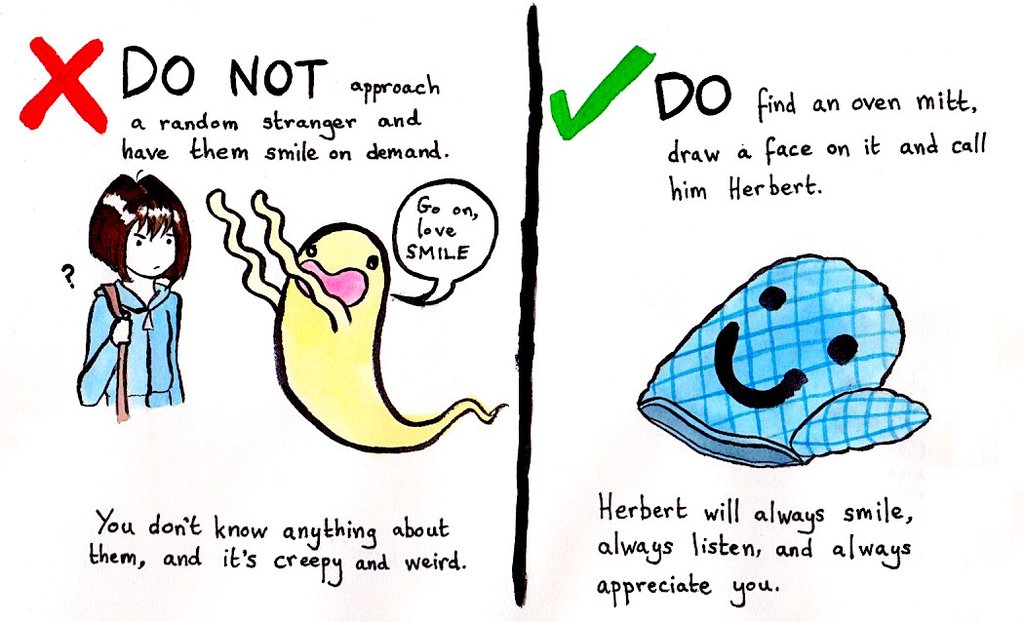 DO NOT approach
a random stranger and
have them smile on demand.
?
Go on,
love
SMILE
You don't know anything about
them, and it's creepy and weird.
DO find an oven mitt,
draw a face on it and call
him Herbert.
Herbert will always smile,
always listen, and always
appreciate you.